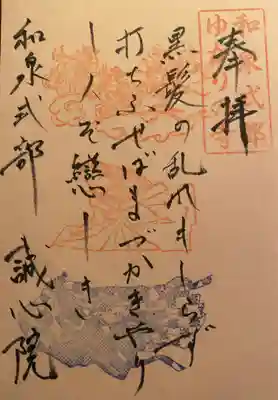 奉拝
和泉式部
ゆかりの寺
黒髪の乱れもしらず
打ちふせばまづかきやり
し人ぞ戀しき
和泉式部 誠心院